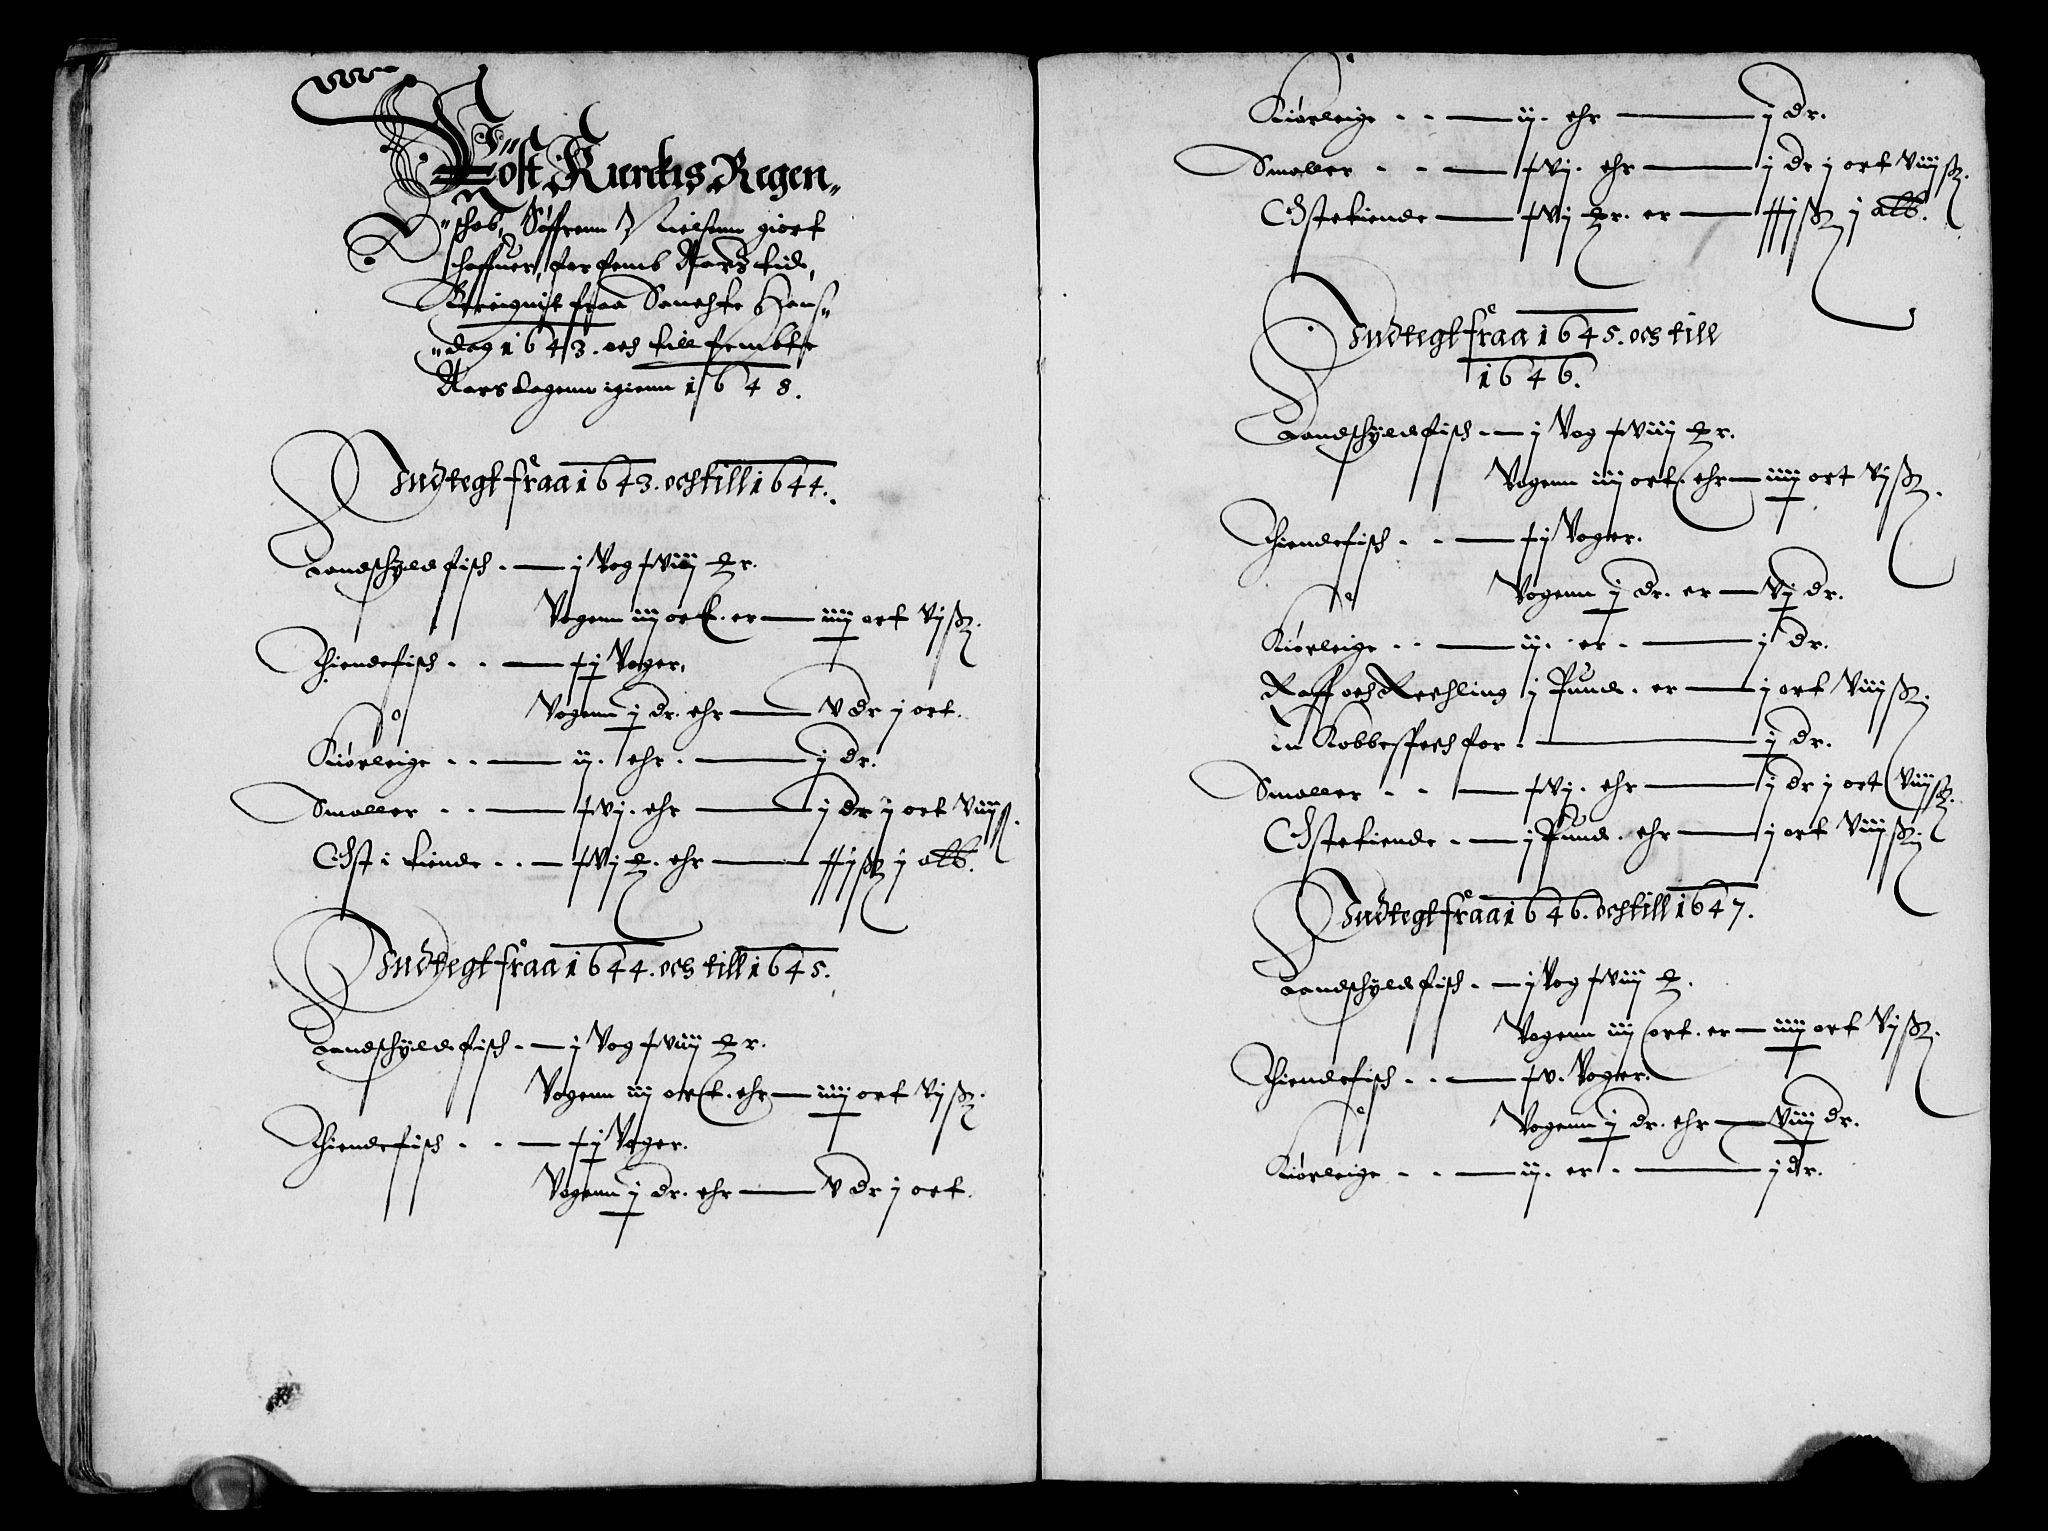 Tøst Kierckis Regen„
„schab, Søffrenn Nielsenn giort
schaffuer, for femb Aarz tid,
Bereignit fraa Sancthe Hans„
„dag 1643. och till fembte
Aars dagenn igienn 1648.
Indtegt fraa 1643. och till 1644.
Landschyld fisch - — j Vog xviij pr.
Vogenn iij ort. er — iiij ort vj ß
Thiendefisch - - — xj Voger,
Vogenn j dr. ehr — v dr j ort.
Kiørleige - - — ij. ehr. — j dr.
Smaller - - — xvj. ehr — j dr j ort viij ß.
Ost i tiende - - — xvj p. ehr — xxj ß j alb.
Indtegt fraa 1644. och till 1645.
Landschyld fisch - — j Vog xviij pr.
Vogenn iij ort. ehr — iiij ort vj ß.
Thiendefisch - - — xj Voger.
Vogenn j dr. ehr — v dr j ort.
Kiørleige - - — ij. ehr — j dr.
Smaller - - — xvj. ehr — j dr j ort viij ß.
Ostetiende — xvj pr. er — xxj ß j alb.
Indtegt fraa 1645. och till
1646.
Landschyld fisch - — j Vog xviij pr.
Vogenn iij ort. ehr — iiij ort vj ß.
Thiendefisch - - — xj Voger.
Vogenn j dr. er — vj dr.
Kiørleige - - — ij. er - — j dr.
Raff och Rechling j Pund. er — j ort viij ß.
in Kobbespech for - — j dr.
Smaller - - — xvj. ehr — j dr j ort viij ß.
Ostetiende - — j Pund. ehr — j ort viij ß.
Indtegt fraa 1646. och till 1647.
Landschyld fisch - — j Vog xviij p.
Vogenn iij ort. er — iiij ort vj ß.
Thiendefisch - - — xv. Voger.
Vogenn j dr. ehr — viij dr.
Kiørleige - - — ij. er - — j dr.